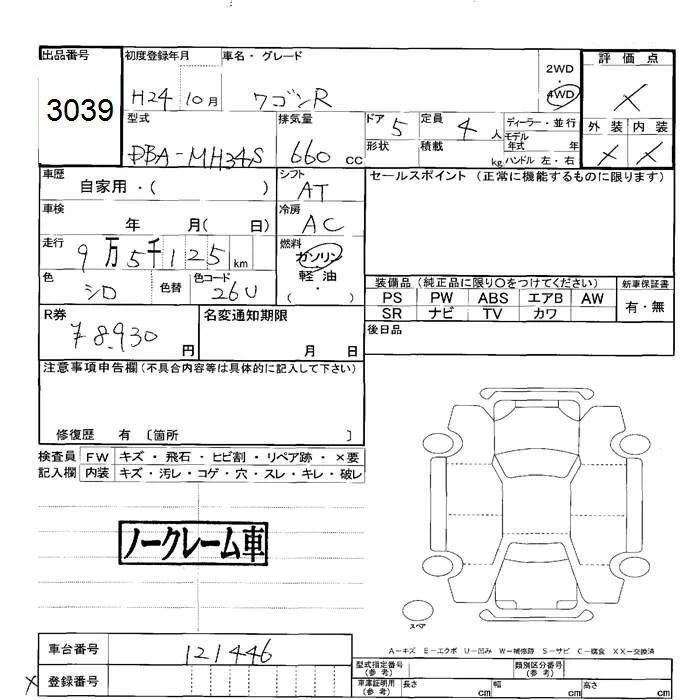 出品番号 初度登録年月 車名・グレード 評価点
3039 H24 10月 ワゴンR 2WD・4WD X
型式 排気量 ドア 5 定員 4 人 ディーラー・並行 外装 内装
DBA-MH34S 660 cc 形状 積載 kg モデル年式 年 ハンドル 左・右 X X
車歴 自家用・( ) シフト AT セールスポイント (正常に機能するものに限ります)
車検 年 月( 日) 冷房 AC
走行 9万5千125km 燃料 ガソリン・軽油・( )
色 シロ 色替 色コード 26U
装備品 (純正品に限り○をつけてください) 新車保証書
PS PW ABS エアB AW 有・無
SR ナビ TV カワ
R券 ¥8,930 円 名変通知期限 月 日 後日品
注意事項申告欄 (不具合内容等は具体的に記入して下さい)
修復歴 有 〔箇所 〕
検査員 FW キズ・飛石・ヒビ割・リペア跡・×要
記入欄 内装 キズ・汚レ・コゲ・穴・スレ・キレ・破レ
ノークレーム車
スペア
A−キズ E−エクボ U−凹み W−補修跡 S−サビ C−腐食 XX−交換済
車台番号 121446
X 登録番号
型式指定番号 (参考) 類別区分番号 (参考)
車庫証明用 (参考) 長さ cm 幅 cm 高さ cm